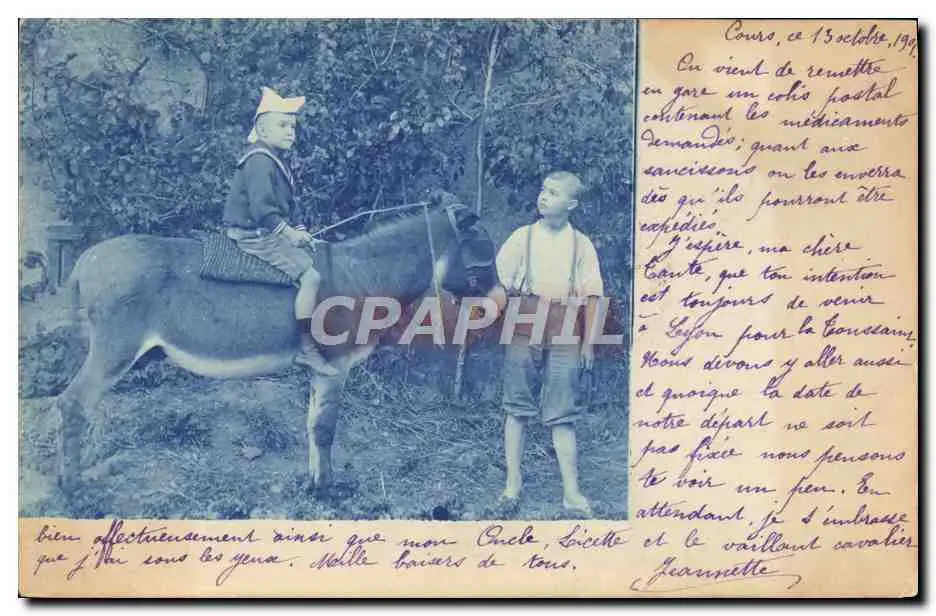 Cours, ce 13 octobre, 190
On vient de remettre
en gare un colis postal
contenant les médicaments
demandés; quant aux
saucissons on les enverra
dès qu'ils pourront être
expédiés.
J'espère, ma chère
Tante, que ton intention
est toujours de venir
à Lyon pour la Toussaint.
Nous devons y aller aussi
et quoique la date de
notre départ ne soit
pas fixée nous pensons
te voir un peu. En
attendant, je t'embrasse
bien affectueusement ainsi que mon Oncle, Licette et le vaillant cavalier
que j'ai sous les yeux. Mille baisers de tous.
Jeannette
CPAPHIL